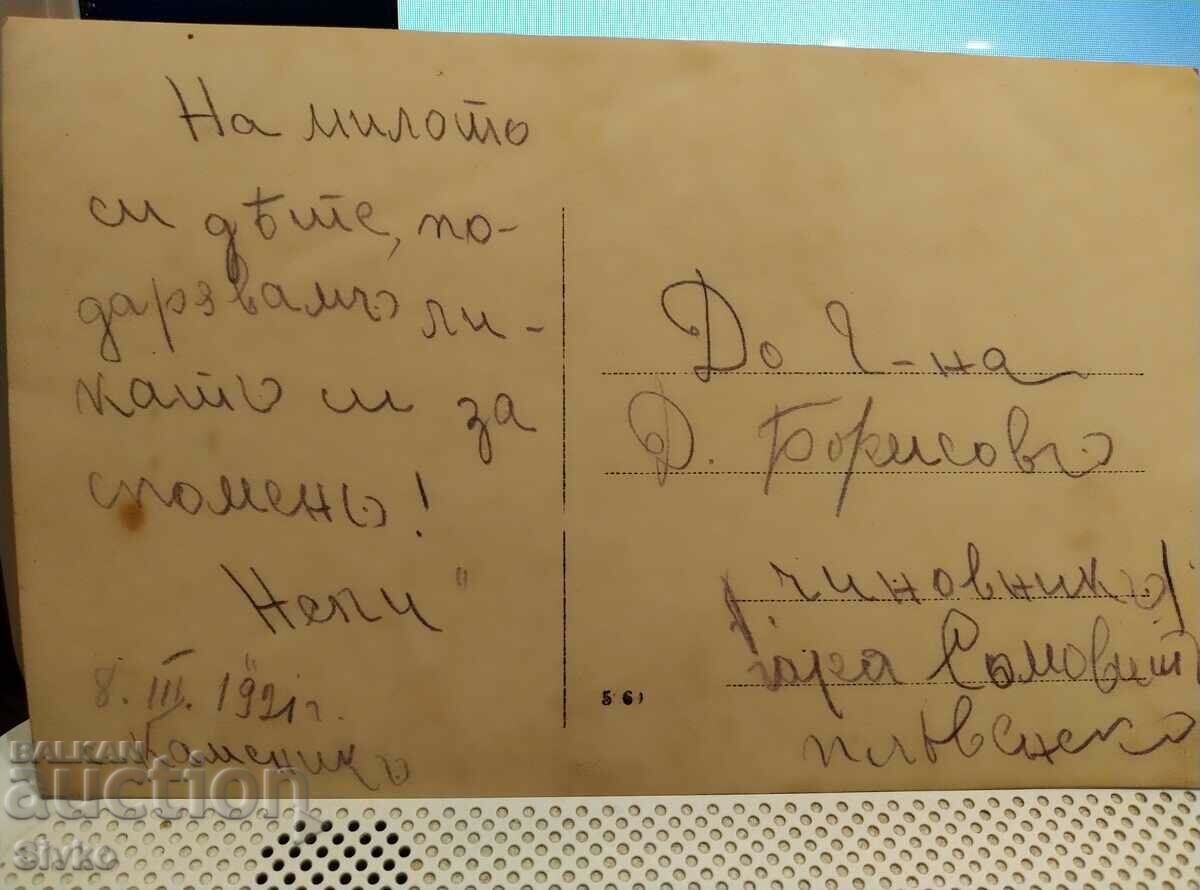 На милото
си дѣте, по-
дарявамъ ли-
като си за
споменъ!
Непи"
8. III. 1921 г.
Каменикъ
До Г-на
Д. Борисовъ
чиновникъ
гара Сомовит
плѣвенско
561
BALKAN
auction
Sivko